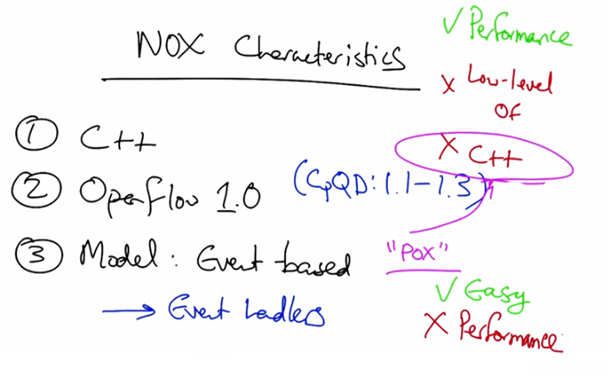 NOX Characteristics
① C++
② Openflow 1.0 (CpQD: 1.1-1.3)
③ Model: Event based
→ Event hadlers
✓ Performance
X Low-level
OF
X C++
"POX"
✓ Easy
X Performance